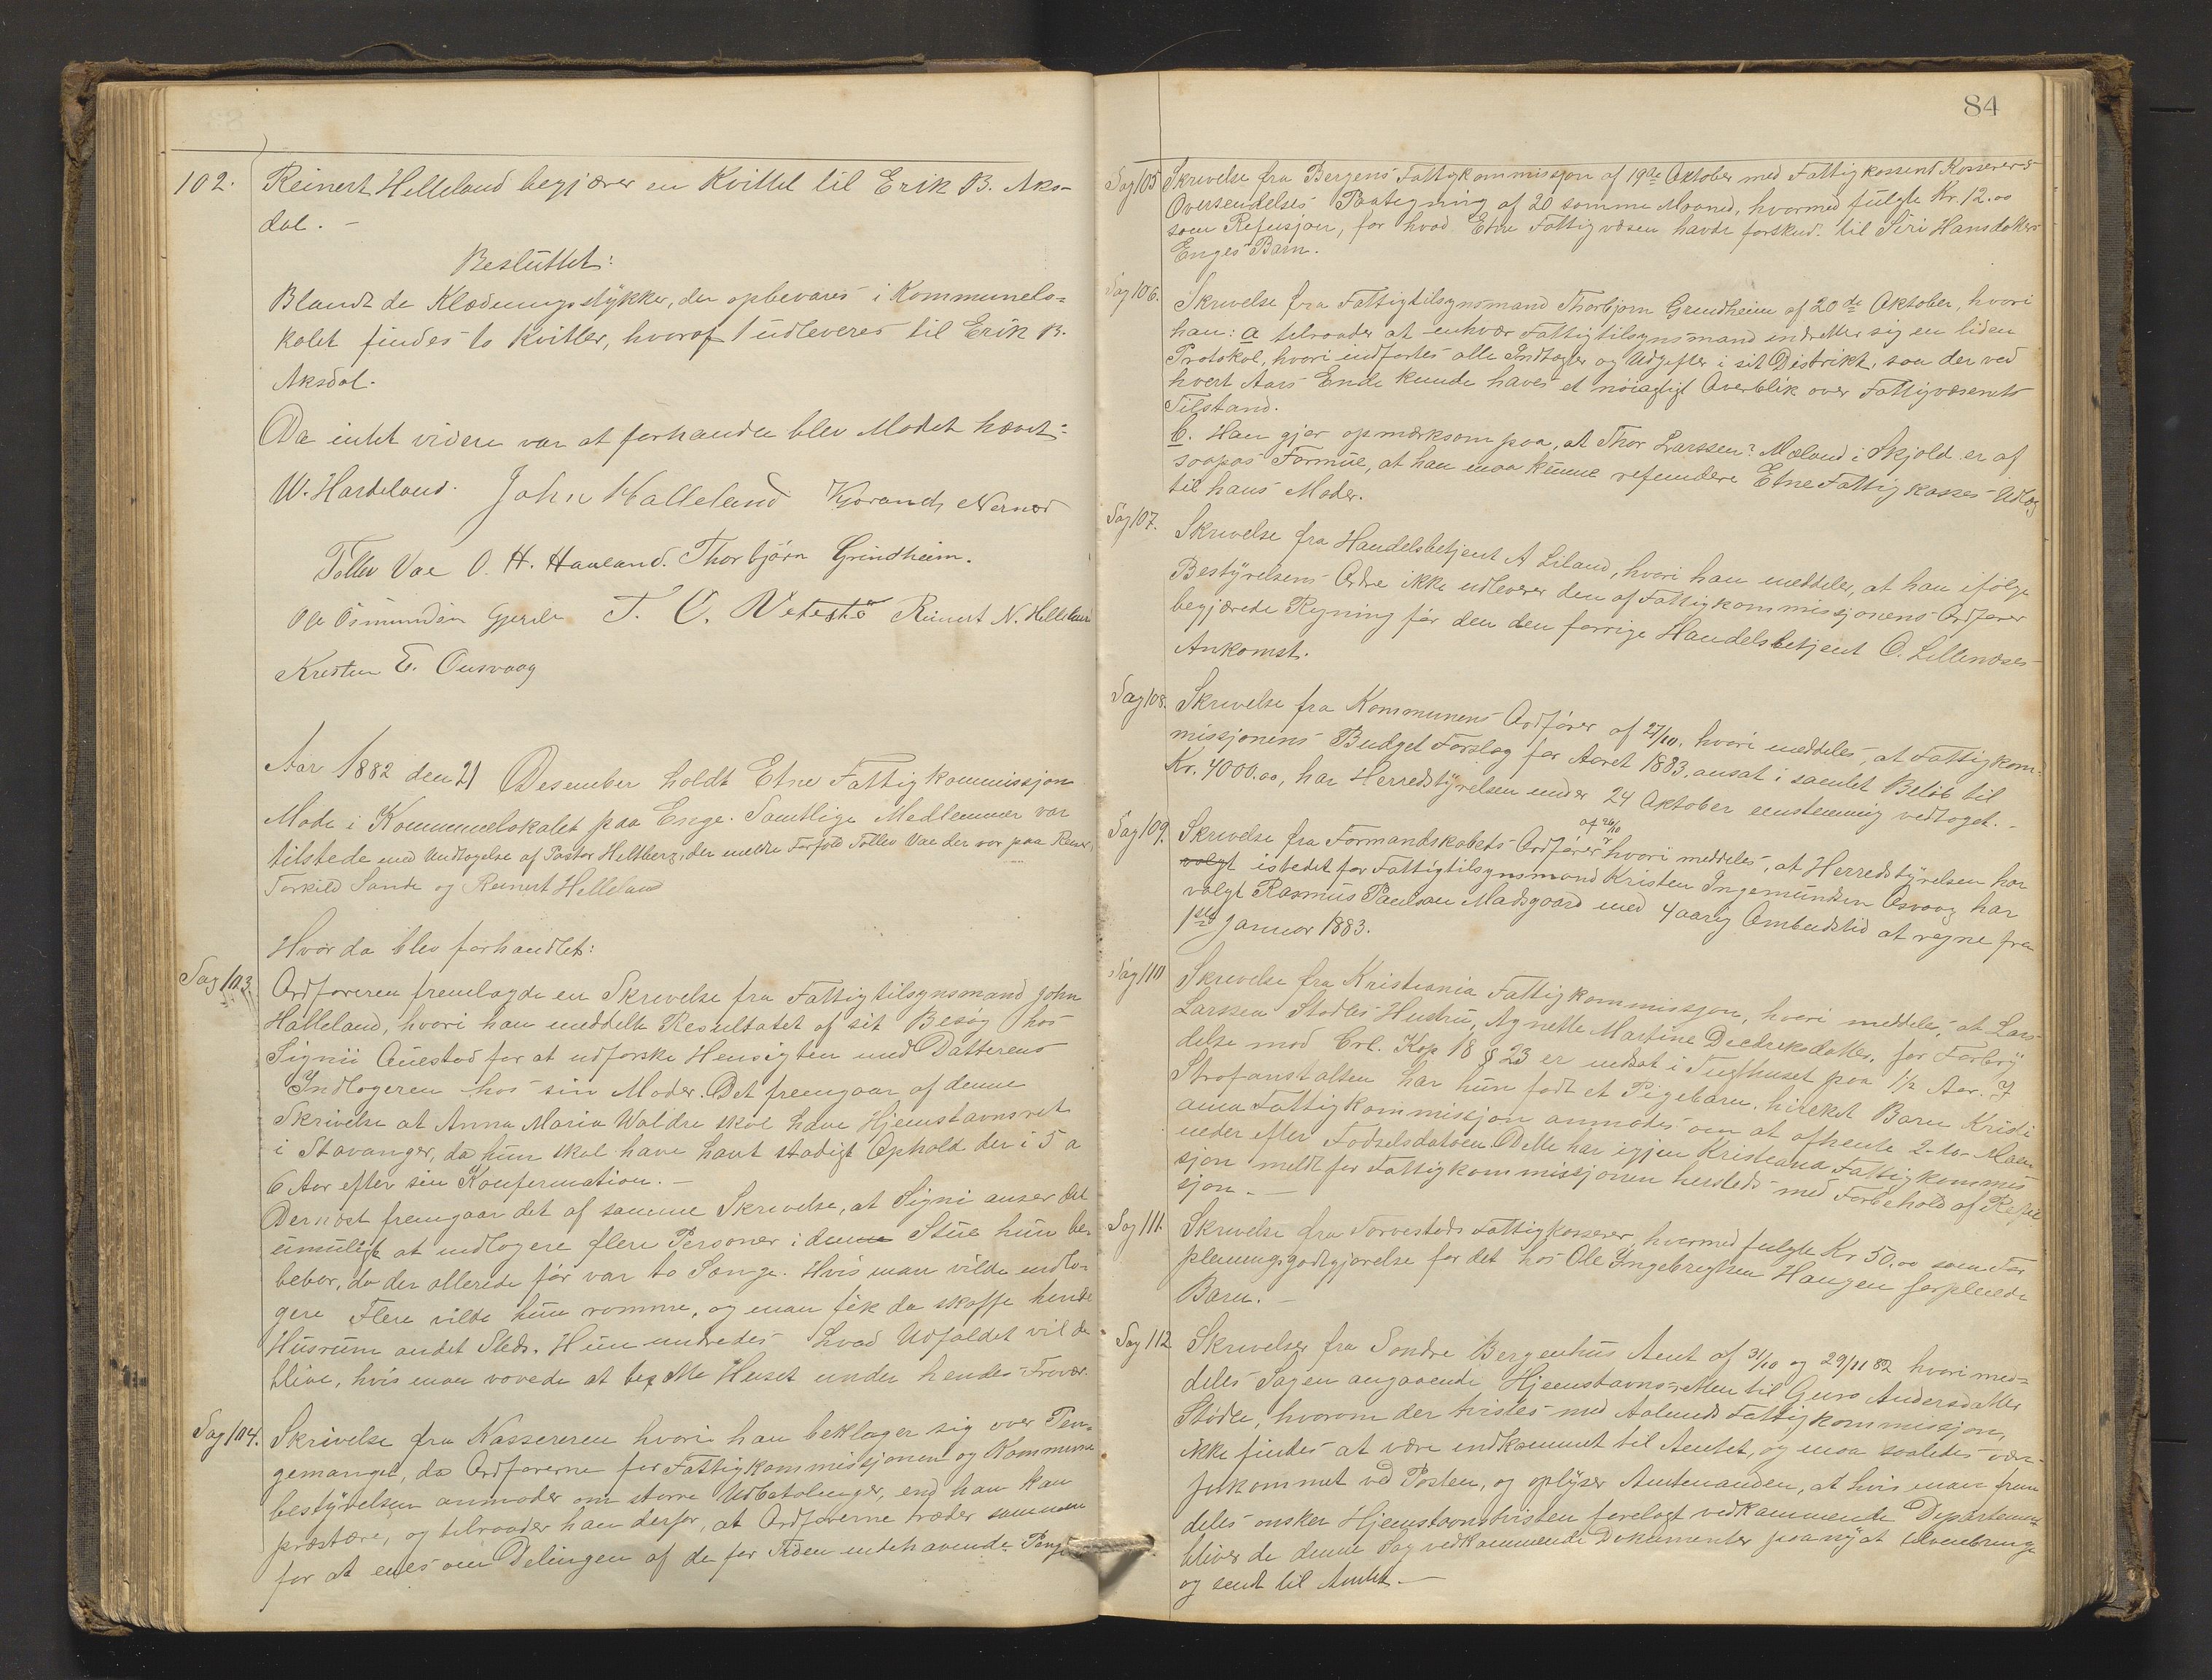 102. Reinert Helleland begjærer en Kvittel til Erik B. Aks-
dal. -
Besluttet:
Blandt de Klædningsstykker, der opbevares i Kommunelo-
kalet findes to Kvitler, hvoraf 1 udleveres til Erik B.
Aksdal.
Da intet videre var at forhandle blev Mødet hævet:
W. Hardeland. John Halleland Gjorand Nernes
Tollev Vae O. H. Haaland. Thorbjörn Grindheim.
Ole Osmundsen Gjerde T. O. Vetestø Reinert N. Helleland
Kresten E. Ousvaag
Aar 1882 den 21 Desember holdt Etne Fattigkommissjon
Møde i Kommunelokalet paa Enge. Samtlige Medlemmer var
tilstede med Undtagelse af Pastor Heltberg, der meldte Forfald Tollev Vae der var paa Reise,
Torkild Sande og Reinert Helleland
Hvor da blev forhandlet:
Sag 103. Ordføreren fremlagde en Skrivelse fra Fattigtilsynsmand John
Halleland, hvori han meddelte Resultatet af sit Besøg hos
Signii Auestad for at udforske Hensigten med Datterens
Indlogeren hos sin Moder. Det fremgaar af denne
Skrivelse at Anna Maria Waldre skal have Hjemstavnsret
i Stavanger, da hun skal have havt stadigt Ophold der i 5 a
6 Aar efter sin Konfirmation. -
Dernæst fremgaar det af samme Skrivelse, at Signi anser det
umuligt at indlogere flere Personer i denne Stue hun be-
bebor, da der allerede før var to Senge. Hvis man vilde indlo-
gere Flere vilde hun rømme, og man fik da skaffe hende
Husrum andet Steds. Hun undredes hvad Udfaldet vil da
blive, hvis man vovede at besette Huset under hendes Fravær.
Sag 104. Skrivelse fra Kassereren hvori han beklager sig over Pen-
gemangel, da Ordførerne for Fattigkommissjonen og Kommune
bestyrelsen anmoder om større Udbetalinger, end han kan
præstere, og tilraader han derfor, at Ordførerne træder sammen
for at enes om Delingen af de for Tiden indehavende Penge
84
Sag 105 Skrivelse fra Bergens Fattigkommissjon af 19de Oktober med Fattigkassens Kasserers
Oversendelses Paategning af 20 samme Maaned, hvormed fulgte Kr. 12.00
som Refusjon, for hvad Etne Fattigvæsen havde forskud. til Siri Hansdatter
Enges Barn.
Sag 106. Skrivelse fra Fattigtilsynsmand Thorbjørn Grindheim af 20de Oktober, hvori
han: a tilraader at enhver Fattigtilsynsmand indretter sig en liden
Protokol, hvori indførtes alle Indtægter og Udgifter i sit Distrikt, saa der ved
hvert Aars Ende kunde haves et nøiagtigt Overblik over Fattigvæsenets
Tilstand.
b. Han gjør opmærksom paa, at Thor Larssen? Mæland i Skjold er af
saapas Formue, at han maa kunne refundere Etne Fattigkasses Udlæg
til hans Moder.
Sag 107. Skrivelse fra Handelsbetjent A Liland, hvori han meddeler, at han ifølge
Bestyrelsens Ordre ikke udleverer den af Fattigkommissjonens Ordfører
begjærede Regning før den den forrige Handelsbetjent O. Lillenæses
Ankomst.
Sag 108. Skrivelse fra Kommunens Ordfører af 27/10, hvori meddeles, at Fattigkom-
missjonens Budget Forslag for Aaret 1883, ansat i samlet Beløb til
Kr. 4000.00, har Herredstyrelsen under 24 Oktober eenstemmig vedtaget. -
af 26/10
Sag 109. Skrivelse fra Formandskabets Ordfører hvori meddeles, at Herredstyrelsen har
valgt istedet for Fattigtilsynsmand Kristen Ingemundsen Osvaag har
valgt Rasmus Paulson Madsgaard med 4aarig Ombudstid at regne fra
1ste Januar 1883.
Sag 110 Skrivelse fra Kristiania Fattigkommissjon, hvori meddeles, at Lars
Larssen Stødles Hustru, Agnette Martine Diedriksdatter, for Forbry-
delse mod Crl. Kap 18 § 23 er indsat i Tugthuset paa 1½ Aar. I
Strafanstalten har hun født et Pigebarn, hvilket Barn Kristi
ania Fattigkommissjon anmodes om at afhente 2-to- Maa-
neder efter Fødselsdatoen. Dette har igjen Kristiania Fattigkommis
sjon meldt for Fattigkommissjonen hersteds med Forbehold af Refu
sjon. -
Sag 111. Skrivelse fra Torvestads Fattigkasserer, hvormed fulgte Kr 50.00 som For
pleiningsgodtgjørelse for det hos Ole Ingebregtsen Haugen forpleiede
Barn. -
Sag 112 Skrivelser fra Søndre Bergenhus Amt af 31/10 og 29/11 82 hvori med-
deles Sagen angaaende Hjemstavnsretten til Guro Andersdatter
Stødle, hvorom der tvistes med Aalunds Fattigkommissjon,
ikke findes at være indkommet til Amtet, og maa saaledes være
forkommet ved Posten, og oplyser Amtmanden, at hvis man frem
deles ønsker Hjemstavnstvisten forelagt vedkommende Departement
bliver de denne Sag vedkommende Dokumenter paa ny at tilveiebringe
og sendt til Amtet. -